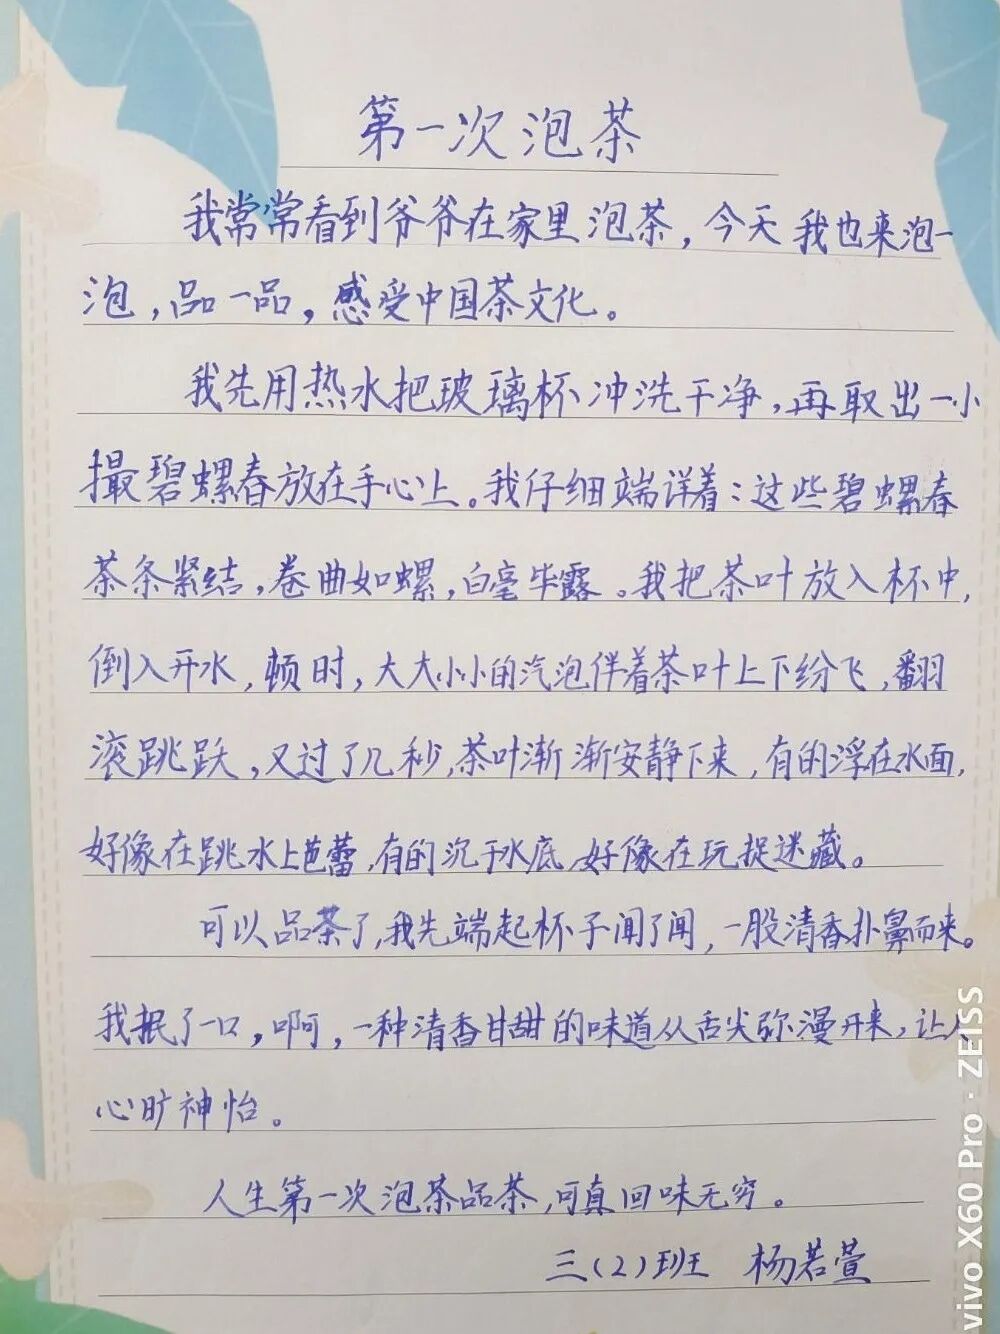 第一次泡茶
我常常看到爷爷在家里泡茶，今天我也来泡一
泡，品一品，感受中国茶文化。
我先用热水把玻璃杯冲洗干净，再取出一小
撮碧螺春放在手心上。我仔细端详着：这些碧螺春
茶条紧结，卷曲如螺，白毫毕露。我把茶叶放入杯中，
倒入开水，顿时，大大小小的汽泡伴着茶叶上下纷飞，翻
滚跳跃，又过了几秒，茶叶渐渐安静下来，有的浮在水面，
好像在跳水上芭蕾，有的沉于水底，好像在玩捉迷藏。
可以品茶了，我先端起杯子闻了闻，一股清香扑鼻而来。
我抿了一口，啊，一种清香甘甜的味道从舌尖弥漫开来，让人
心旷神怡。
人生第一次泡茶品茶，可真回味无穷。
三（2）班 杨若萱
vivo X60 Pro · ZEISS